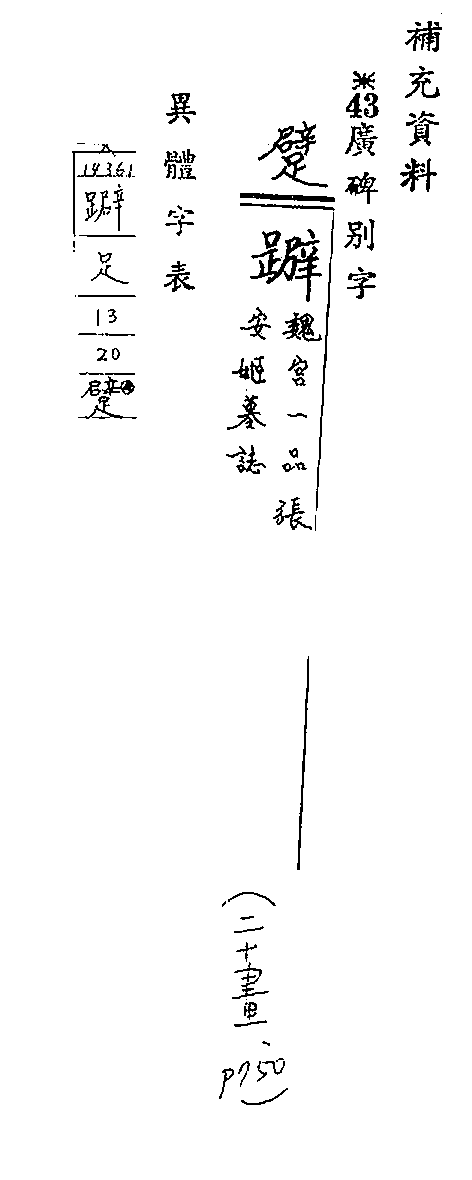 補充資料
※43廣碑別字
躄
𨇽
魏宮一品張
安姬墓誌
(二十畫、
P750)
異體字表
足
13
20
躄